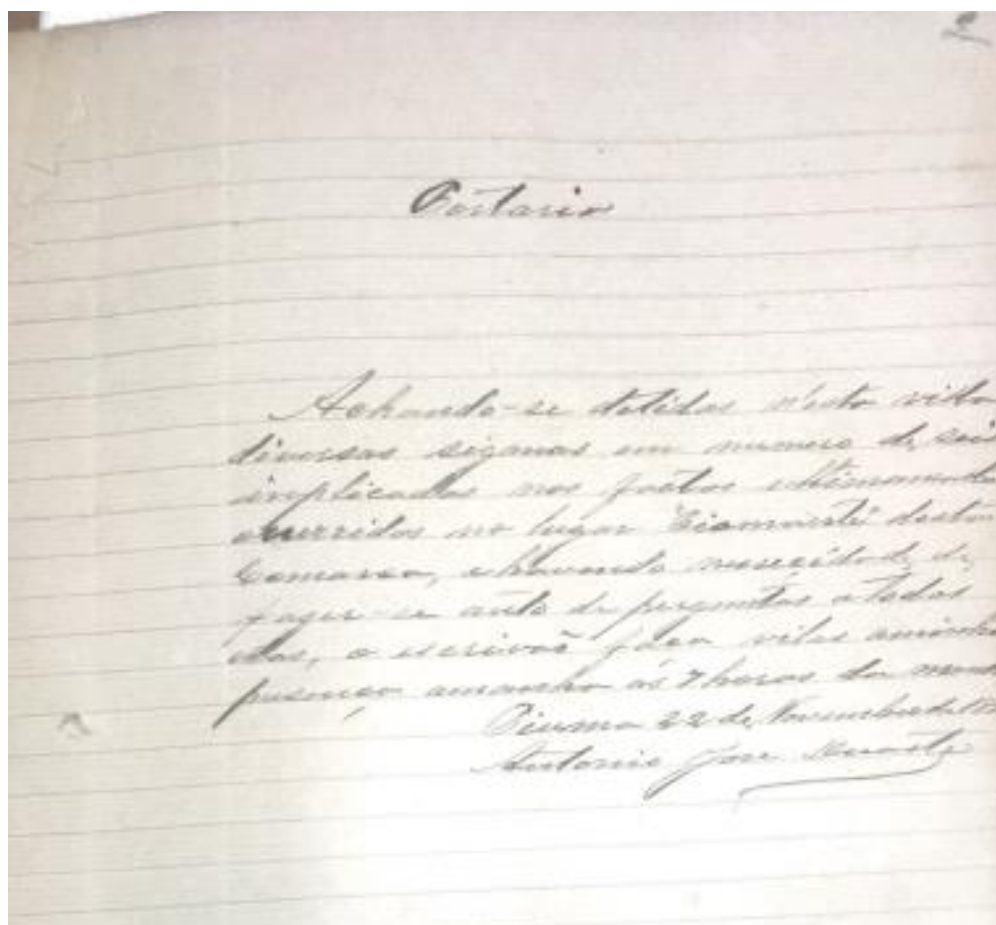 Portaria
Achando-se detidas n'esta villa
diversas siganas em numero de seis
implicadas nos factos ultimamente
occurridos no lugar desta
Comarca, e havendo necessidade de
fazer-se auto de perguntas a todas
ellas, o escrivão faça vir
presença amanhã ás 7 horas da
Piuma 22 de Novembro de
Antonio José Duarte